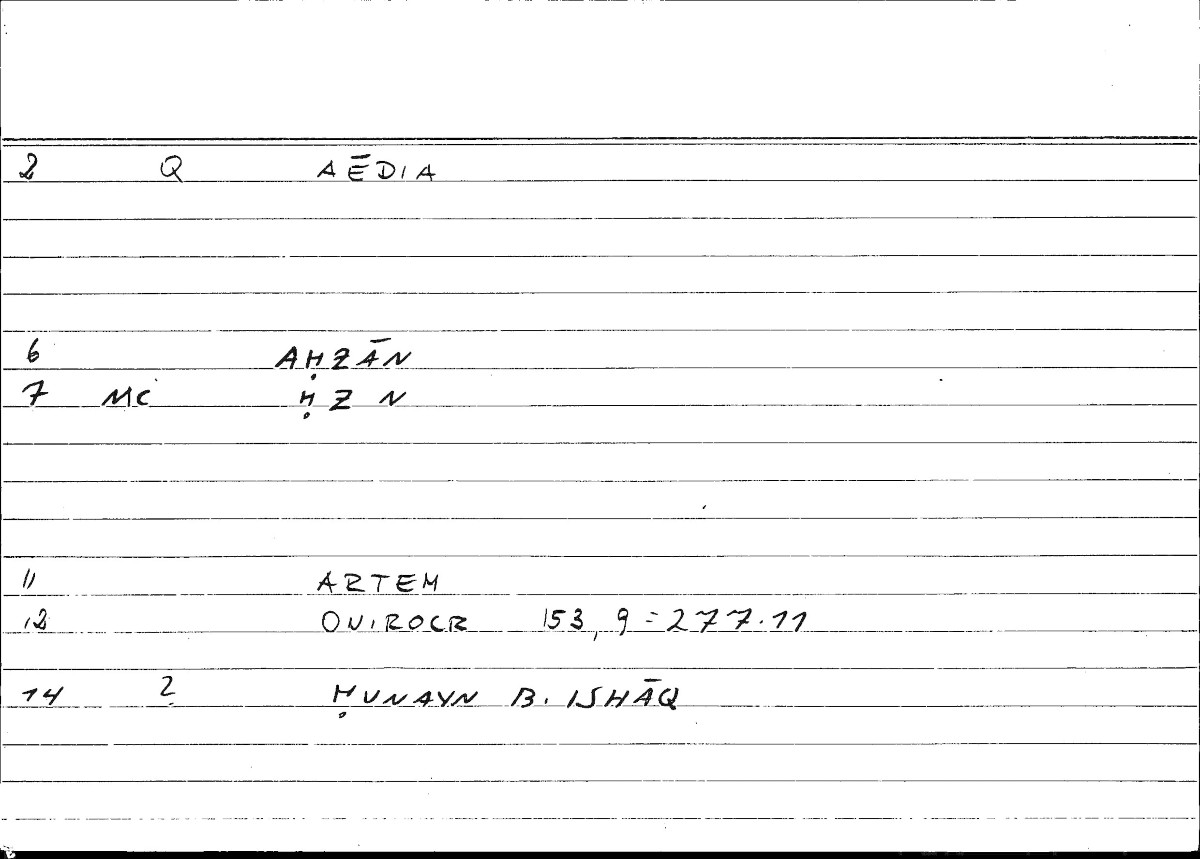 2 Q AĒDIA
6 AḤZĀN
7 MC Ḥ Z N
11 ARTEM
12 ONIROCR 153, 9 = 277.11
14 2 ḤUNAYN B. ISHĀQ